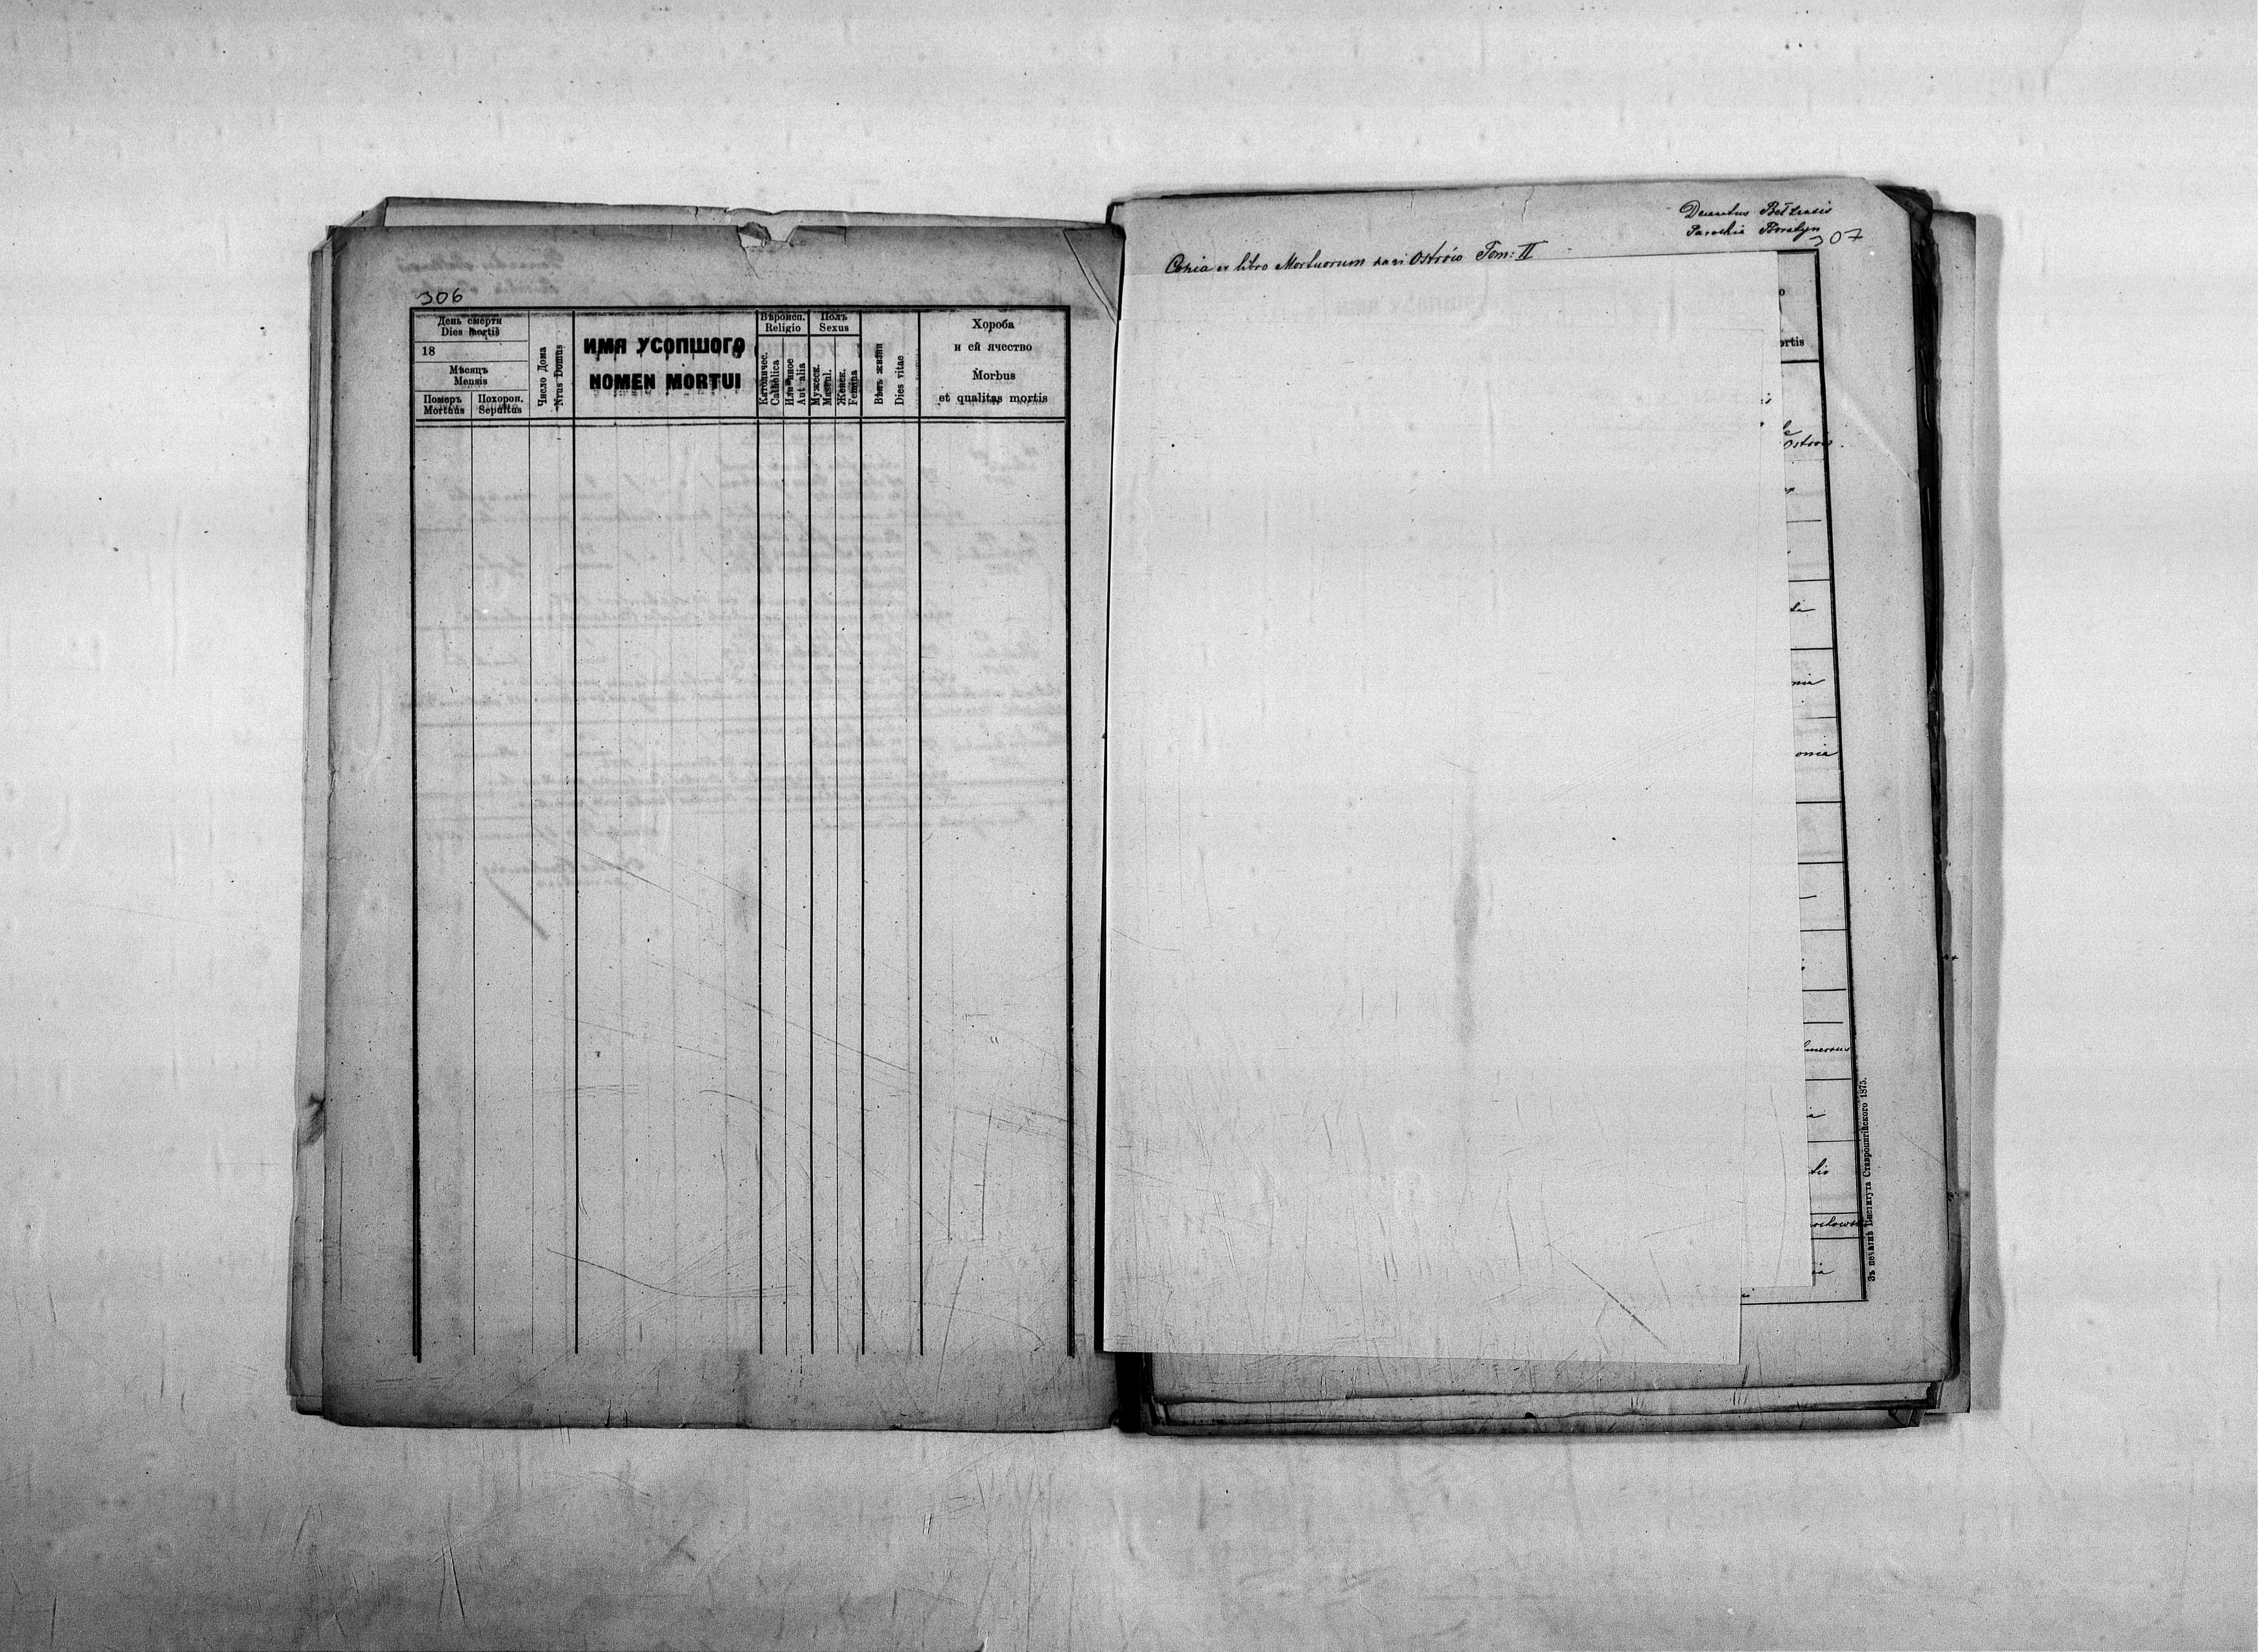 306
День смерти
Dies mortis
18
Мѣсяцъ
Mensis
Померъ
Mortuus
Похорон.
Sepultus
Число Дома
Nrus Domus
ИМЯ УСОПШОГО
NOMEN MORTUI
Вѣроисп.
Religio
Католичес.
Catholica
Или иное
Aut alia
Полъ
Sexus
Мужеск.
Mascul.
Женск.
Femina
Вѣкъ жизни
Dies vitae
Хороба
и ей ячество
Morbus
et qualitas mortis
Decanatus Bełzensis
Parochia Boratyn
307
Copia ex libro Mortuorum pagi Ostrów Tom: II
ortis
Ostrów.
Зъ печатнѣ Института Ставропигійского 1875.